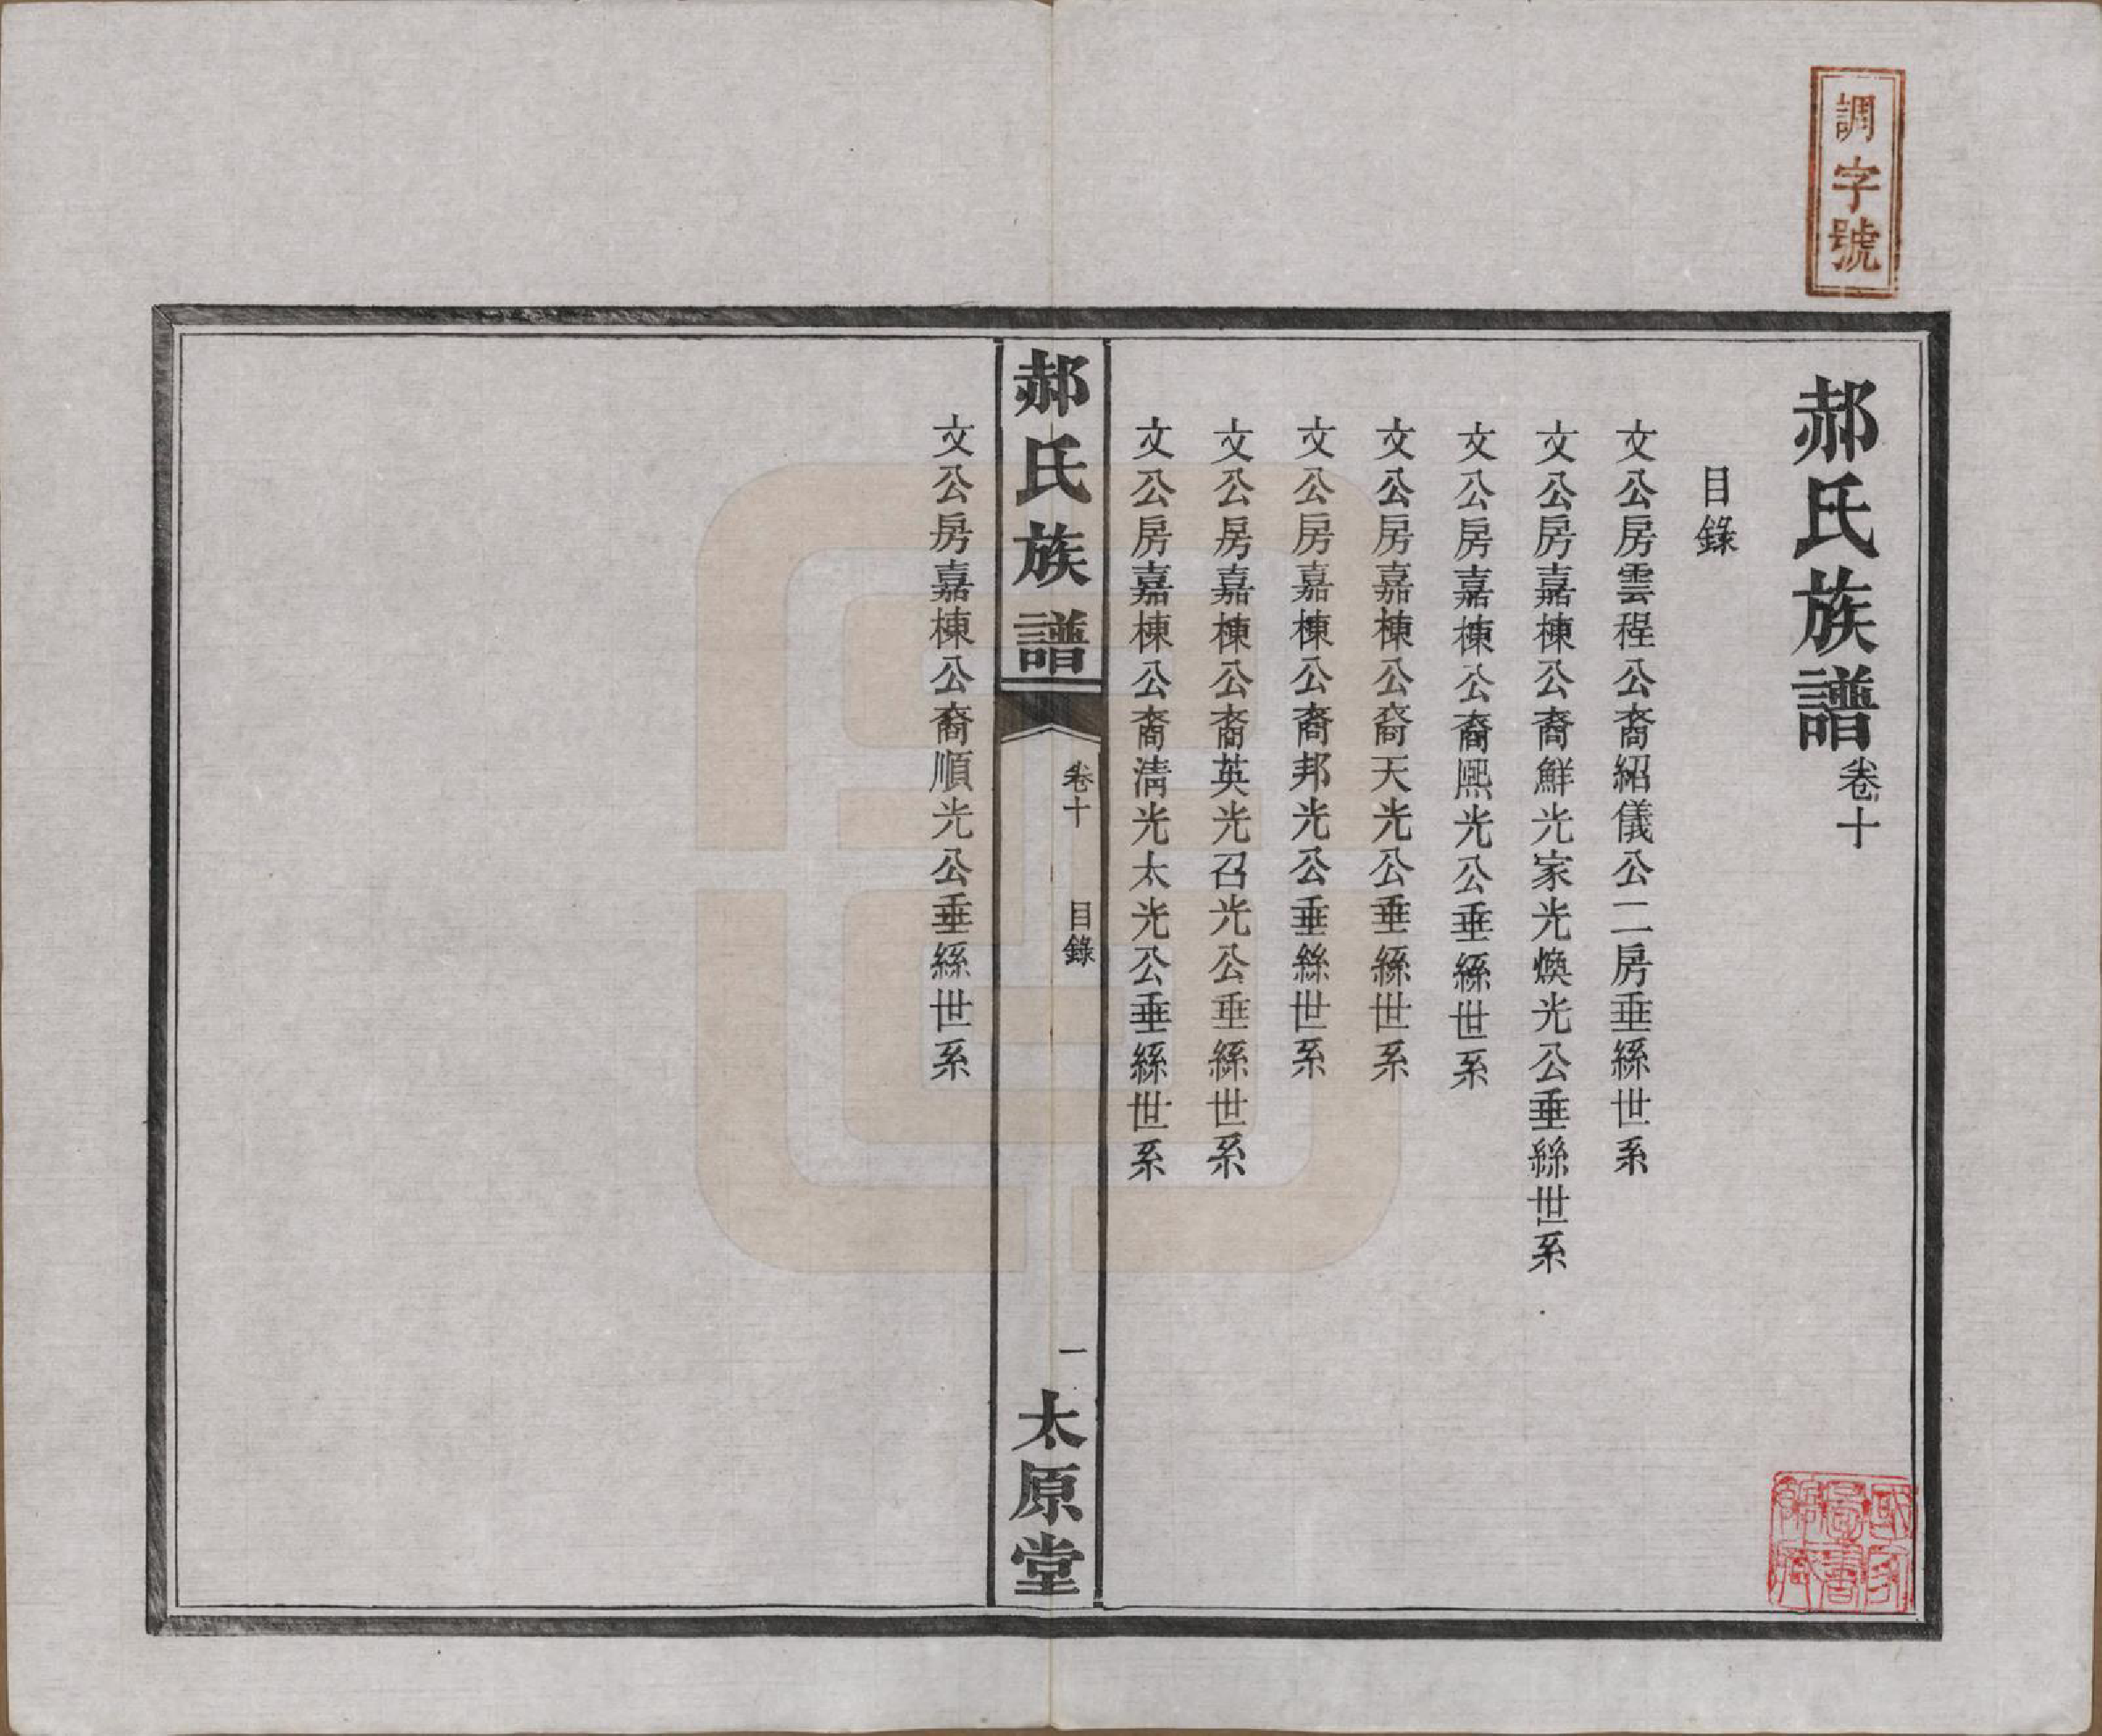 調字號
郝氏族譜卷十
目錄
文公房雲程公裔紹儀公二房垂絲世系
文公房嘉棟公裔鮮光家光煥光公垂絲世系
文公房嘉棟公裔熙光公垂絲世系
文公房嘉棟公裔天光公垂絲世系
文公房嘉棟公裔邦光公垂絲世系
文公房嘉棟公裔英光召光公垂絲世系
文公房嘉棟公裔清光太光公垂絲世系
郝氏族譜
卷十 目錄
一
太原堂
文公房嘉棟公裔順光公垂絲世系
國家圖書館藏